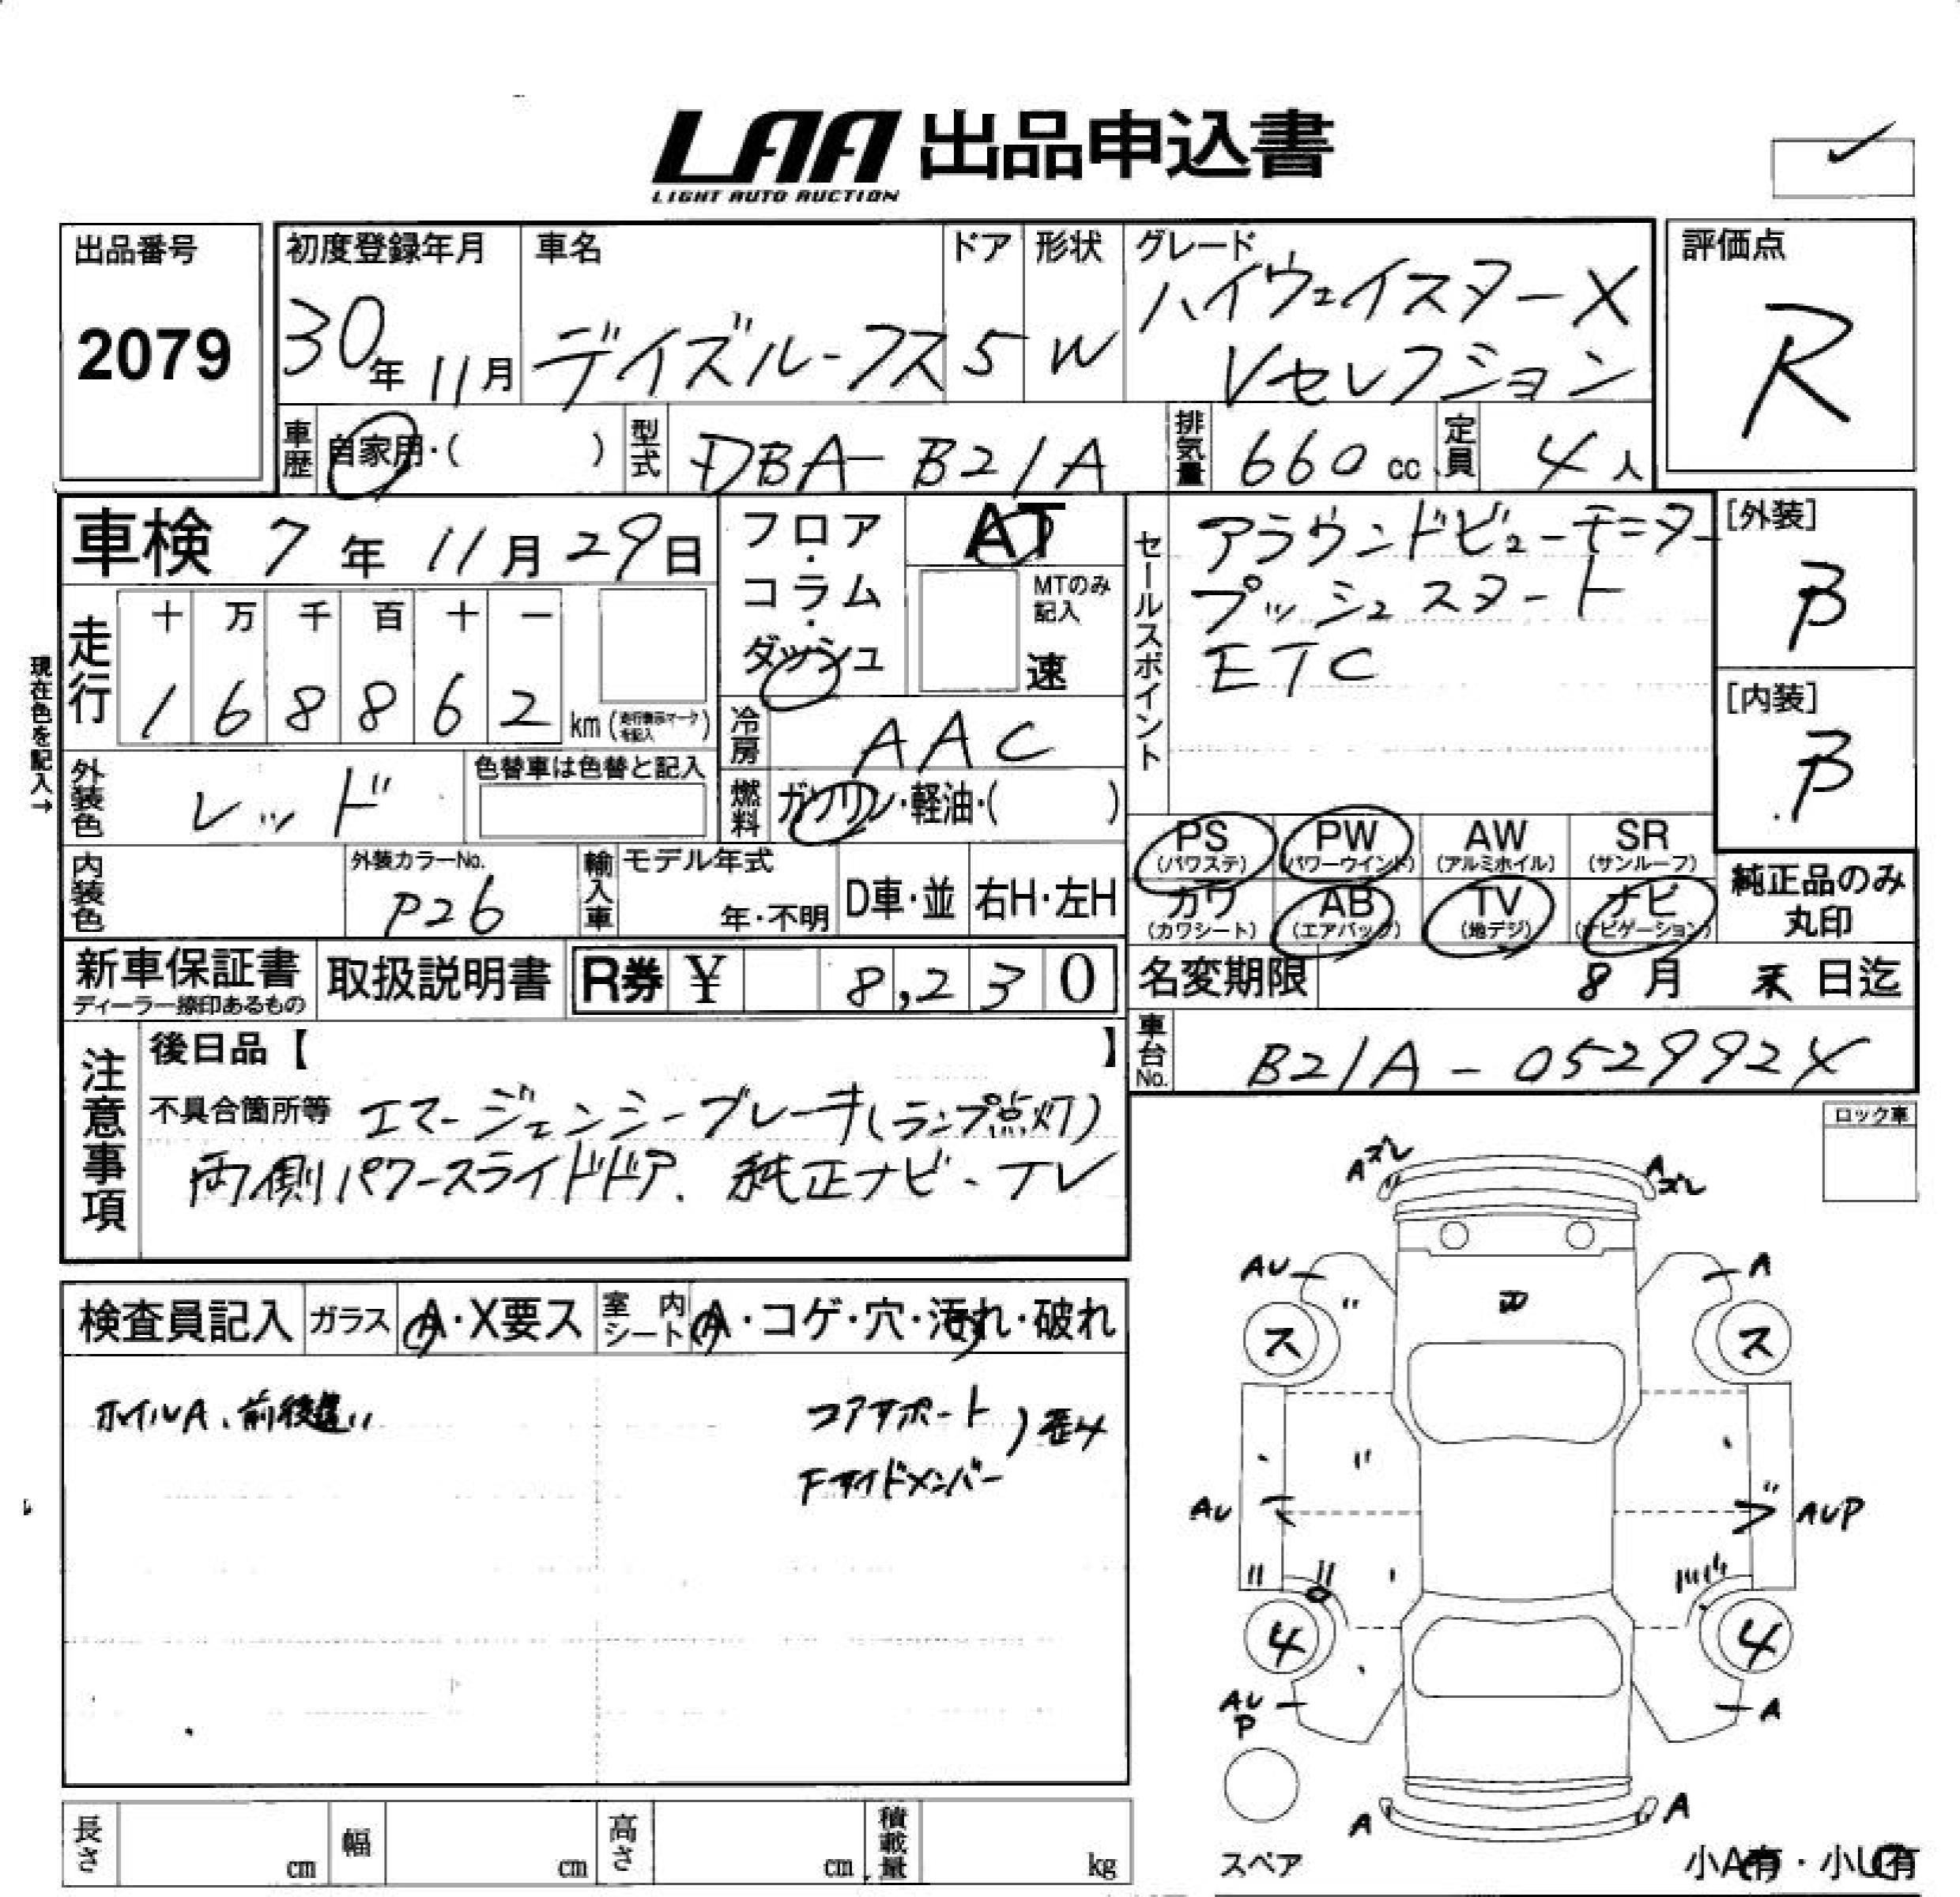 LAA 出品申込書
LIGHT AUTO AUCTION
出品番号
2079
初度登録年月
30年 11月
車名
デイズルークス
ドア
5
形状
W
グレード
ハイウェイスターX
Vセレクション
評価点
R
車歴 自家用・( )
型式 DBA-B21A
排気量 660cc
定員 4人
車検 7年 11月 29日
走行
十 万 千 百 十 一
1 6 8 8 6 2 km (走行表示マークを記入)
現在色を記入→
外装色 レッド
色替車は色替と記入
内装色
外装カラーNo.
P26
フロア・コラム・ダッシュ
AT
MTのみ記入
速
冷房 AAC
燃料 ガソリン・軽油・( )
輸入車
モデル年式
年・不明
D車・並
右H・左H
セールスポイント
アラウンドビューモニター
プッシュスタート
ETC
[外装]
B
[内装]
B
PS (パワステ)
PW (パワーウインド)
AW (アルミホイル)
SR (サンルーフ)
カワ (カワシート)
AB (エアバッグ)
TV (地デジ)
ナビ (ナビゲーション)
純正品のみ丸印
新車保証書
ディーラー捺印あるもの
取扱説明書
R券 ¥ 8,230
名変期限 8月 末日迄
車台No. B21A-052992X
注意事項
後日品【 】
不具合箇所等 エマージェンシーブレーキ(ランプ点灯)
両側パワースライドドア、純正ナビ・TV
ロック車
検査員記入
ガラス A・X要ス
室内シート A・コゲ・穴・汚れ・破れ
ホイルA、前後違い
コアサポート
Fサイドメンバー
Aズレ
Aズレ
AU
A
ス
ス
AU
AUP
4
4
AU
P
A
A
A
スペア
小A有・小U有
長さ cm
幅 cm
高さ cm
積載量 kg